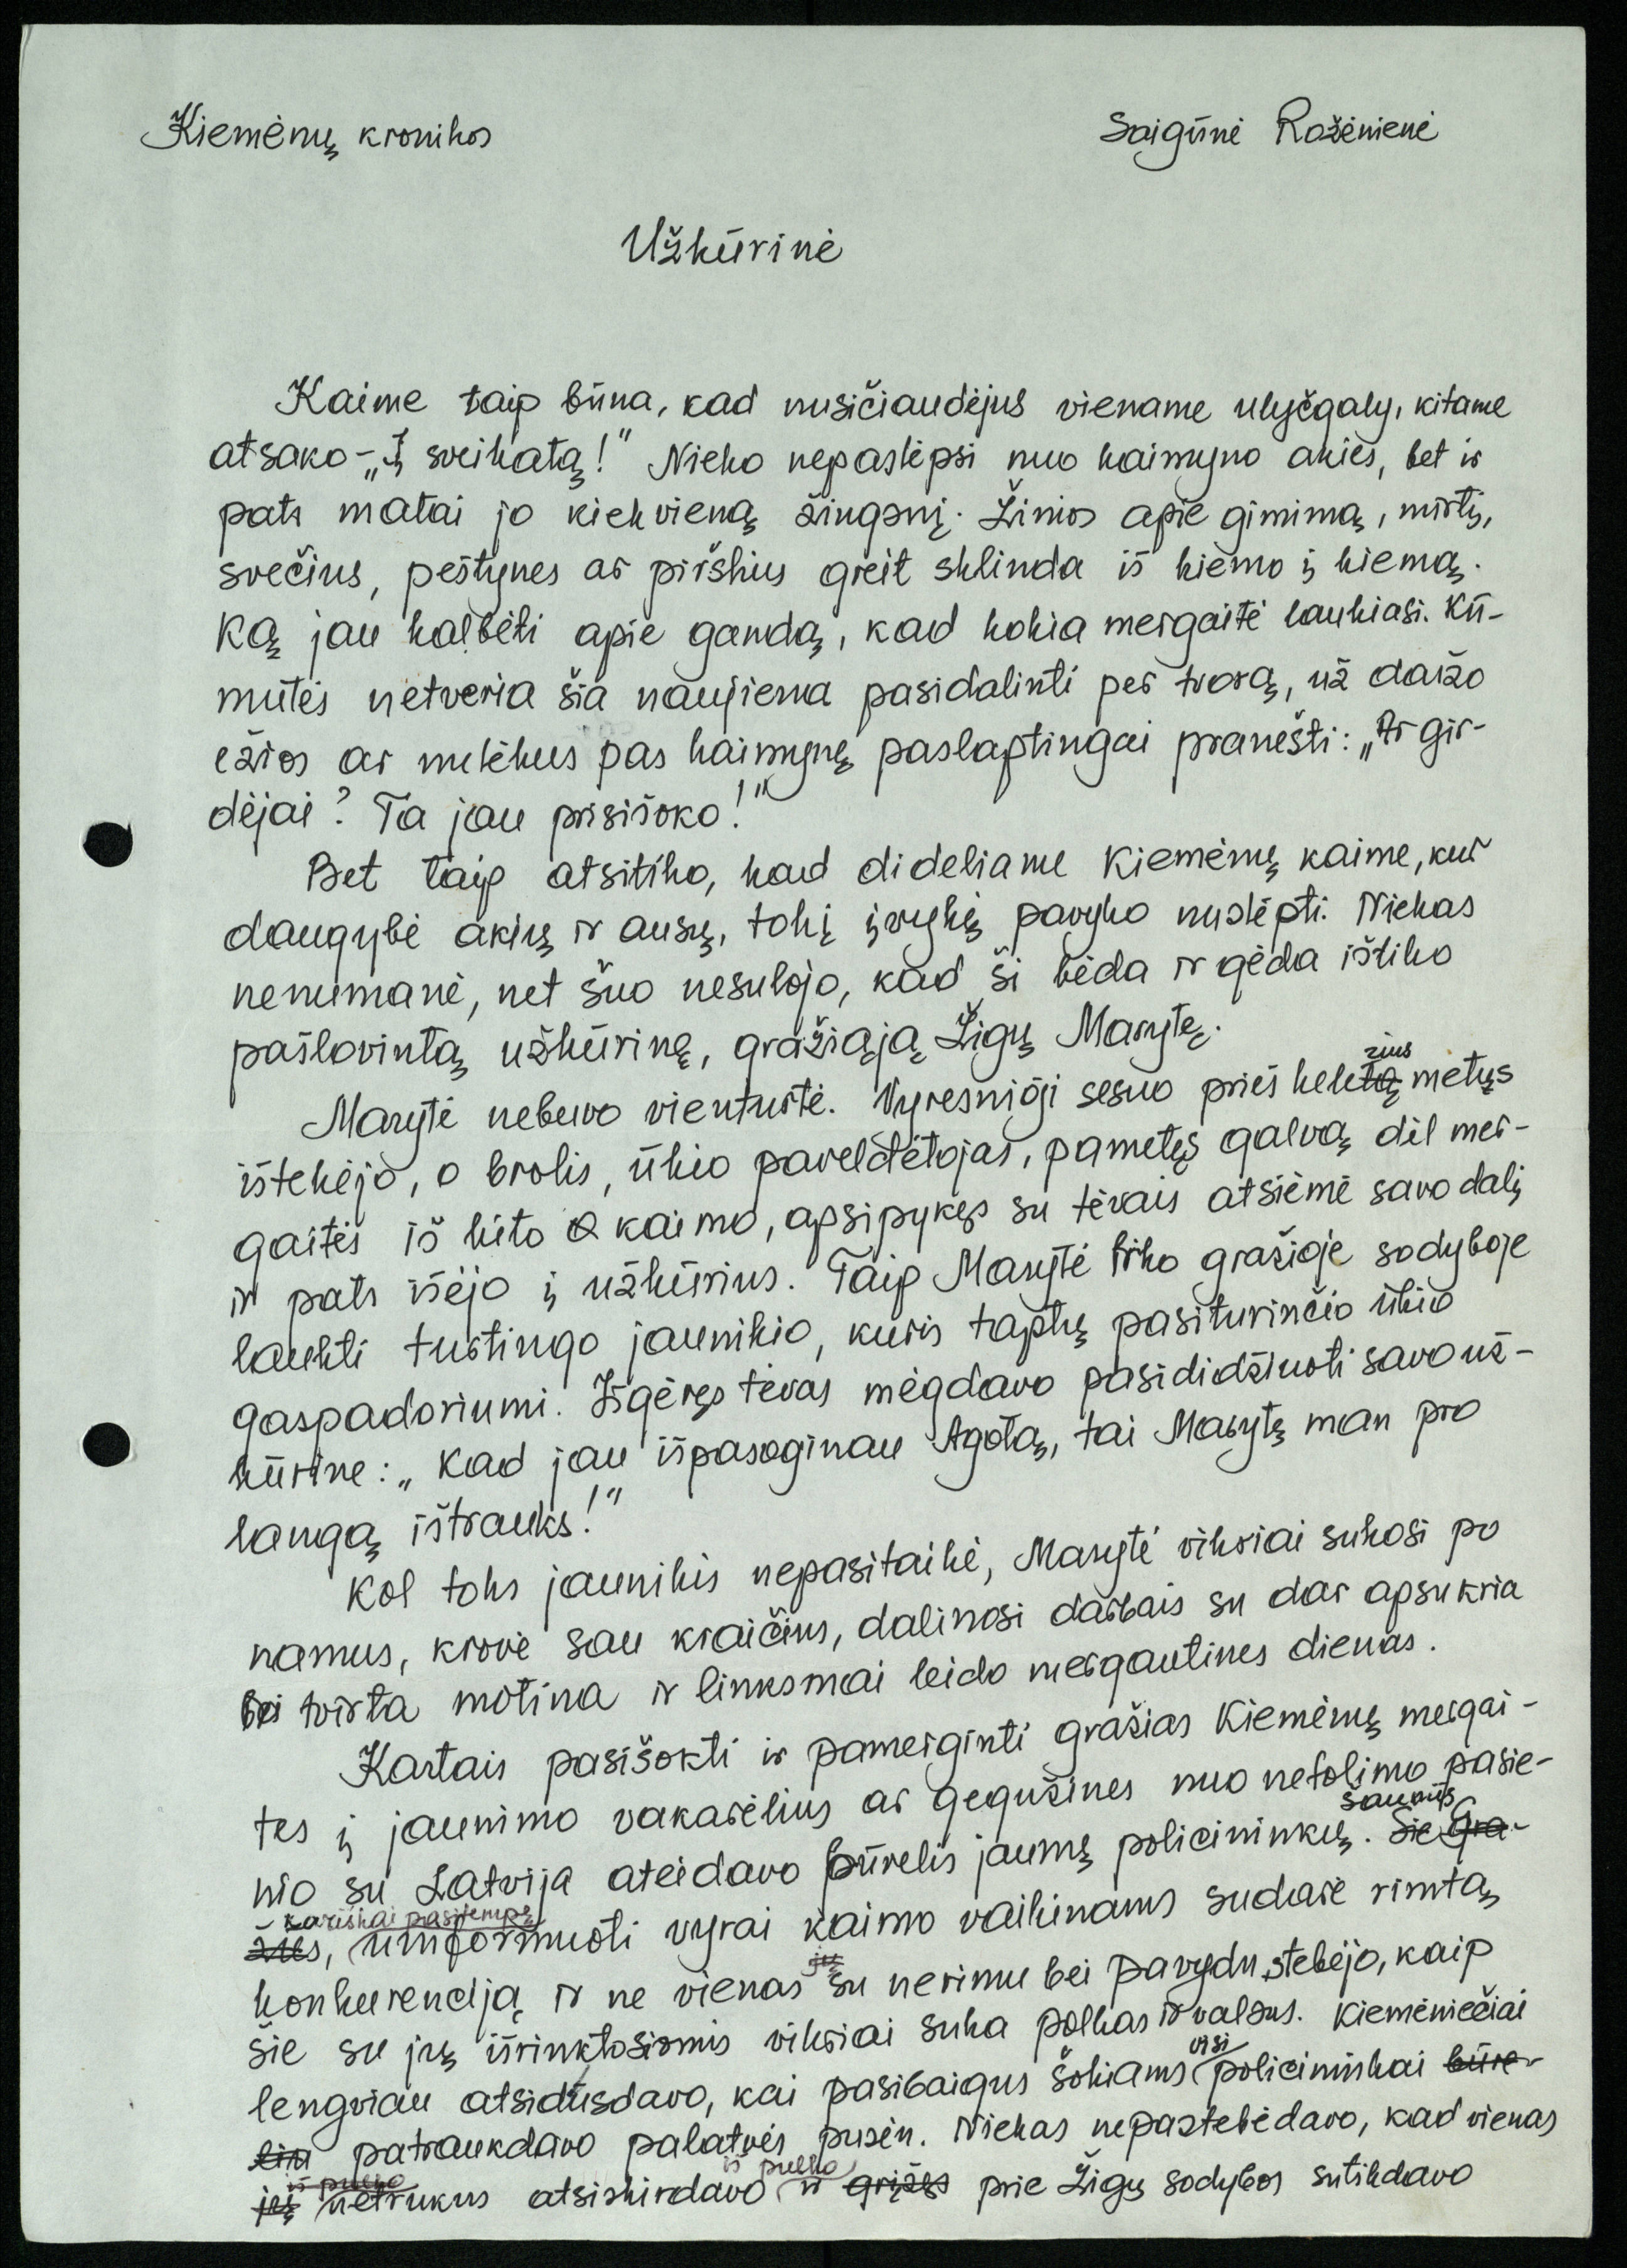 Kiemėnų kronikos
Saigūnė Roženienė
Užkūrinė
Kaime taip būna, kad nusičiaudėjus viename ulyčgaly, kitame
atsako – „Į sveikatą!" Nieko nepaslėpsi nuo kaimyno akies, bet ir
pats matai jo kiekvieną žingsnį. Žinios apie gimimą, mirtį,
svečius, peštynes ar piršlius greit sklinda iš kiemo į kiemą.
Ką jau kalbėti apie gandą, kad kokia mergaitė laukiasi. Kū-
mutės netveria šia naujiena pasidalinti per tvorą, už daržo
ežios ar nulėkus pas kaimynę paslaptingai pranešti: „Ar gir-
dėjai? Ta jau prisišoko!"
Bet taip atsitiko, kad dideliame Kiemėnų kaime, kur
daugybė akių ir ausų, tokį įvykį pavyko nuslėpti. Niekas
nenumanė, net šuo nesulojo, kad ši bėda ir gėda ištiko
pašlovintą užkūrinę, gražiąją Žigų Marytę.
Marytė nebuvo vienturtė. Vyresnioji sesuo prieš keletą rius metus
ištekėjo, o brolis, ūkio paveldėtojas, pametęs galvą dėl mer-
gaitės iš kito kaimo, apsipykęs su tėvais atsiėmė savo dalį
ir pats išėjo į užkūrius. Taip Marytė liko gražioje sodyboje
laukti turtingo jaunikio, kuris taptų pasiturinčio ūkio
gaspadoriumi. Išgėręs tėvas mėgdavo pasididžiuoti savo už-
kūrine: „Kad jau išpasoginau Agotą, tai Marytę man pro
langą ištrauks!"
Kol toks jaunikis nepasitaikė, Marytė vikriai sukosi po
namus, krovė sau kraičius, dalinosi darbais su dar apsukria
bei tvirta motina ir linksmai leido mergautines dienas.
Kartais pasišokti ir pamerginti gražias Kiemėnų mergai-
tes į jaunimo vakarėlius ar gegužines nuo netolimo pasie-
nio su Latvija ateidavo būrelis jaunų policininkų. Šie Gra-
šaunūs
žūs, kariškai pasitempę uniformuoti vyrai kaimo vaikinams sudarė rimtą
konkurenciją ir ne vienas jų su nerimu bei pavydu stebėjo, kaip
šie su jų išrinktosiomis vikriai suka polkas ir valsus. Kiemėniečiai
lengviau atsidusdavo, kai pasibaigus šokiams visi policininkai būre-
liu patraukdavo palatvės pusėn. Niekas nepastebėdavo, kad vienas
jų iš pulko netrukus atsiskirdavo iš pulko ir grįžęs prie Žigų sodybos sutikdavo